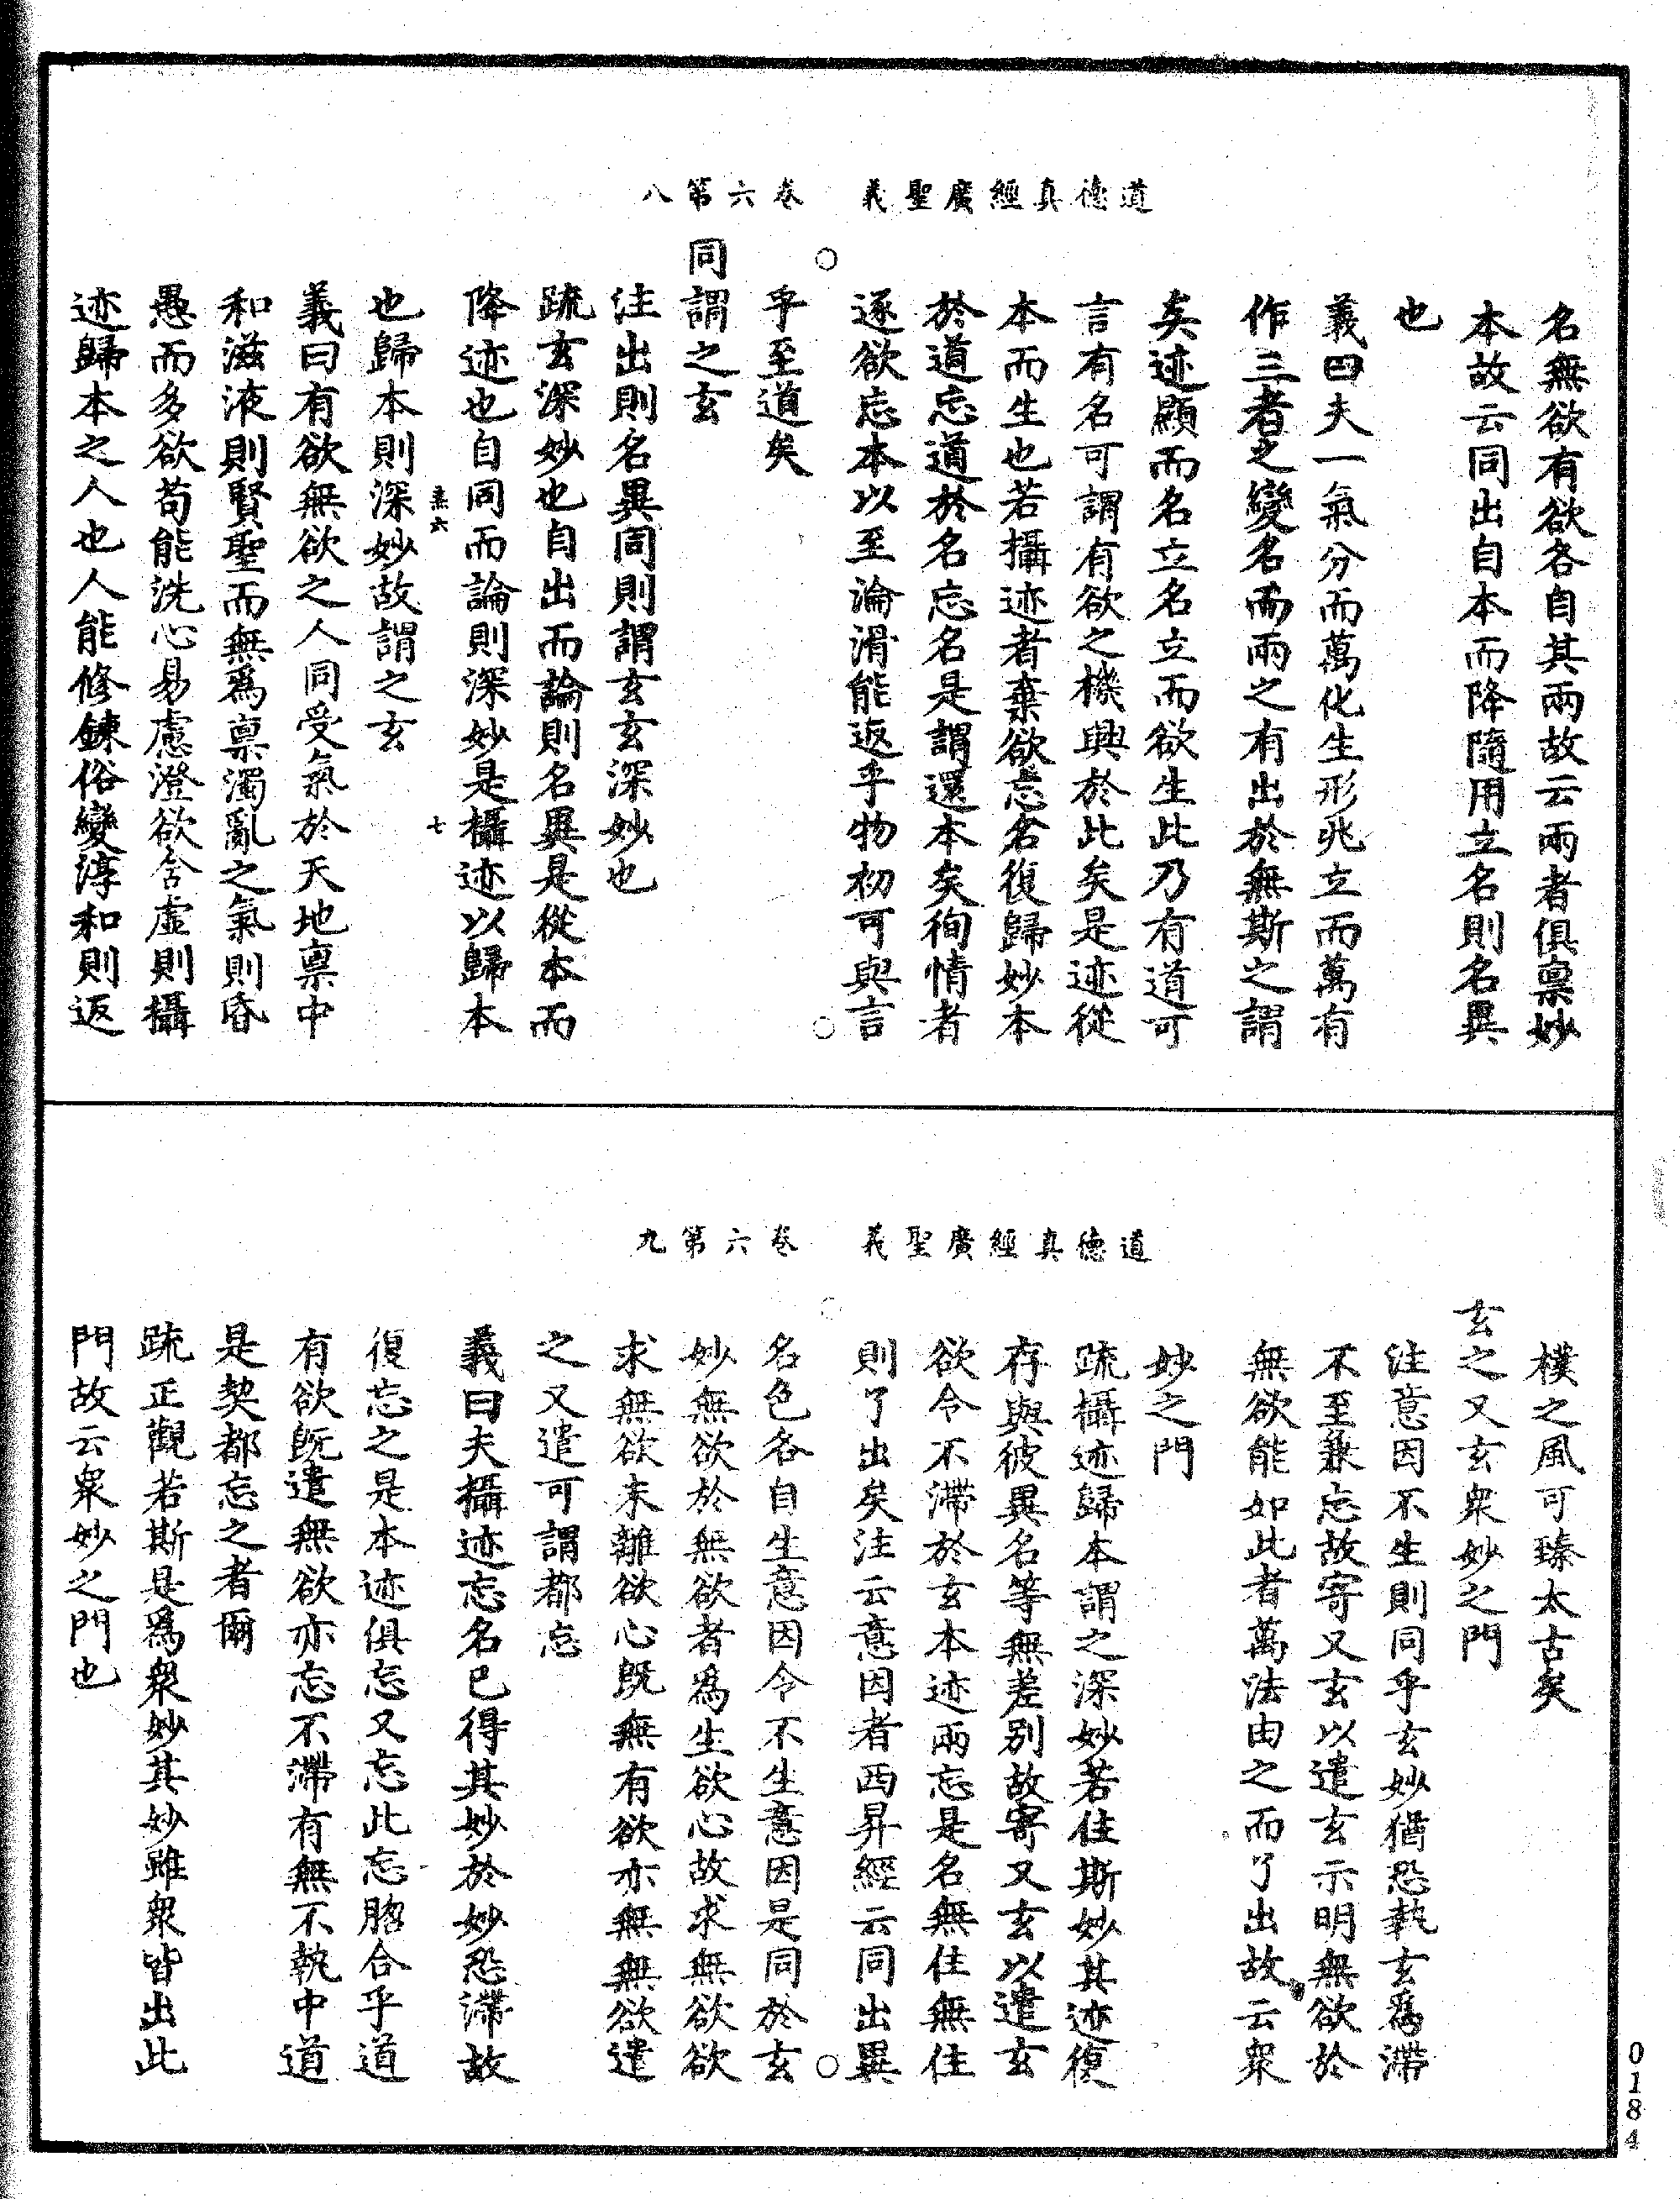 道德真經廣聖義　卷六第八
名無欲有欲各自其兩故云兩者俱禀妙
本故云同出自本而降隨用立名則名異
也
義曰夫一氣分而萬化生形兆立而萬有
作三者之變名而兩之有出於無斯之謂
矣迹顯而名立名立而欲生此乃有道可
言有名可謂有欲之機興於此矣是迹從
本而生也若攝迹者棄欲忘名復歸妙本
於道忘道於名忘名是謂還本矣徇情者
逐欲忘本以至淪滑能返乎物初可與言
乎至道矣
同謂之玄
注出則名異同則謂玄玄深妙也
疏玄深妙也自出而論則名異是從本而
降迹也自同而論則深妙是攝迹以歸本
也歸本則深妙故謂之玄
義曰有欲無欲之人同受氣於天地禀中
和滋液則賢聖而無為禀濁亂之氣則昏
愚而多欲苟能洗心易慮澄欲含虛則攝
迹歸本之人也人能修鍊俗變淳和則返
道德真經廣聖義　卷六第九
樸之風可臻太古矣
玄之又玄衆妙之門
注意因不生則同乎玄妙猶恐執玄為滯
不至兼忘故寄又玄以遣玄示明無欲於
無欲能如此者萬法由之而了出故云衆
妙之門
疏攝迹歸本謂之深妙若住斯妙其迹復
存與彼異名等無差别故寄又玄以遣玄
欲令不滯於玄本迹兩忘是名無住無住
則了出矣注云意因者西昇經云同出異
名色各自生意因今不生意因是同於玄
妙無欲於無欲者為生欲心故求無欲欲
求無欲未離欲心既無有欲亦無無欲遣
之又遣可謂都忘
義曰夫攝迹忘名已得其妙於妙恐滯故
復忘之是本迹俱忘又忘此忘脗合乎道
有欲既遣無欲亦忘不滯有無不執中道
是契都忘之者爾
疏正觀若斯是為衆妙其妙雖衆皆出此
門故云衆妙之門也
0184